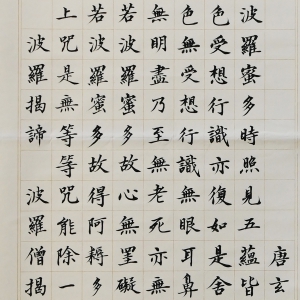 唐玄
波羅蜜多時照見五蘊皆
色受想行識亦復如是舍
色無受想行識無眼耳鼻
無明盡乃至無老死亦無
若波羅蜜多故心無罣礙
若波羅蜜多故得阿耨多
上咒是無等等咒能除一
波羅揭諦 波羅僧揭